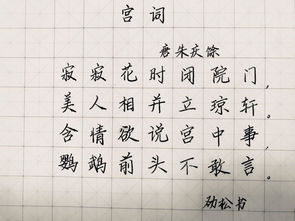 宫词
唐朱庆馀
寂寂花时闭院门，
美人相并立琼轩。
含情欲说宫中事，
鹦鹉前头不敢言。
劲松书